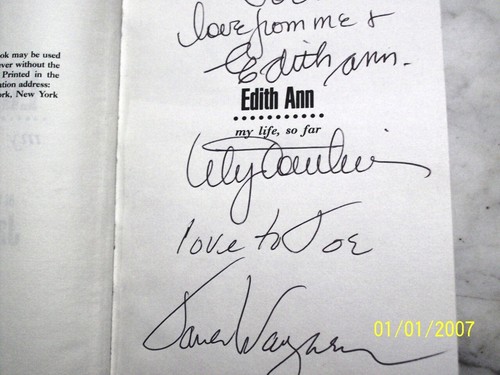 ook may be used
ver without the
Printed in the
ation address:
ork, New York
love from me &
Edith Ann.
Edith Ann
my life, so far
Lily Tomlin
love to Joe
Jane Wagner
01/01/2007